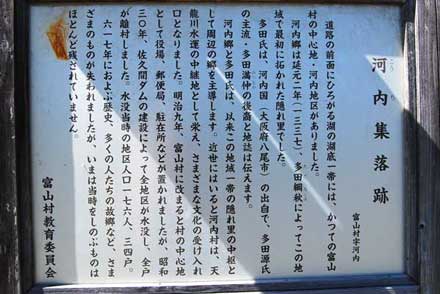 河内集落跡
富山村字河内
道路の前面にひろがる湖の湖底一帯には、かつての富山
村の中心地・河内地区がありました。
河内郷は延元二年(一三三七)、多田綱秋によってこの地
域で最初に拓かれた隠れ里でした。
多田氏は、河内国(大阪府八尾市)の出自で、多田源氏
の主流・多田満仲の後裔と地誌は伝えます。
河内郷と多田氏は、以来この地域一帯の隠れ里の中枢と
して周辺の郷を主導します。近世にはいると河内村は、天
龍川水運の中継地として栄え、さまざまな文化の受け入れ
口となりました。明治九年、富山村に改まると村の中心地
として役場、郵便局、駐在所などが置かれましたが、昭和
三〇年、佐久間ダムの建設によって全地区が水没し、全戸
が離村しました。水没当時の地区人口一七六人、三四戸。
六一七年におよぶ歴史、多くの人たちの故郷など、さま
ざまのものが失われましたが、いまは当時をしのぶものは
ほとんど残されていません。
富山村教育委員会